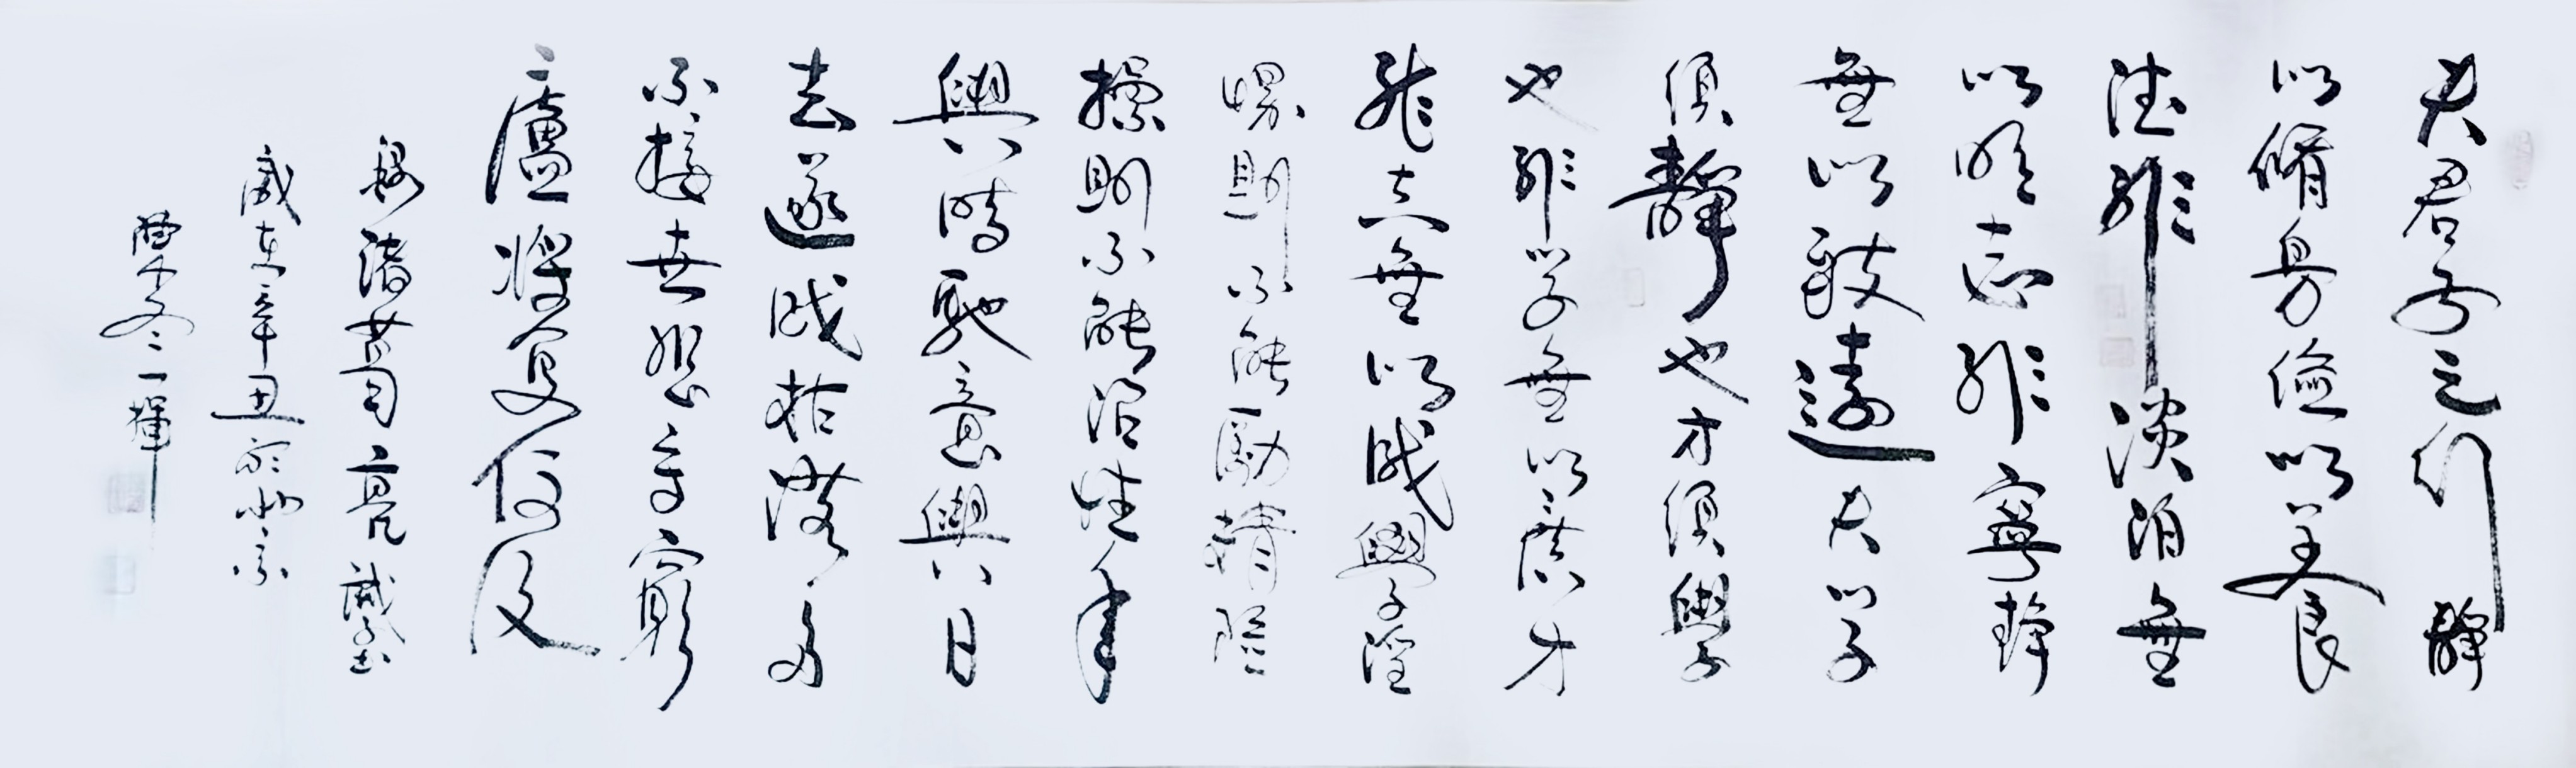 夫君子之行靜
以脩身儉以養
德非淡泊無
以明志非寧靜
無以致遠夫學
須靜也才須學
也非學無以廣才
非志無以成學淫
慢則不能勵精險
躁則不能治性年
與時馳意與日
去遂成枯落多
不接世悲守窮
廬將復何及
錄諸葛亮誡子書
歲在辛丑於北京
冬一揮